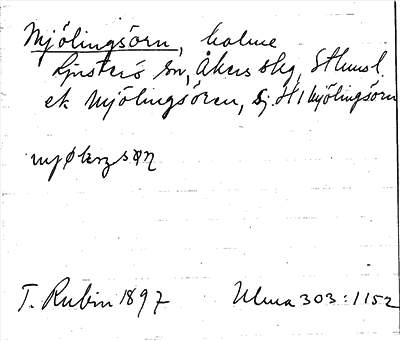 Mjölingsörn, holme
Ljusterö sn, Åkers skg, Sthmsl.
ek Mjölingsören, Sj. H1 Mjölingsörn
T. Rubin 1897 Ulma 303:1152